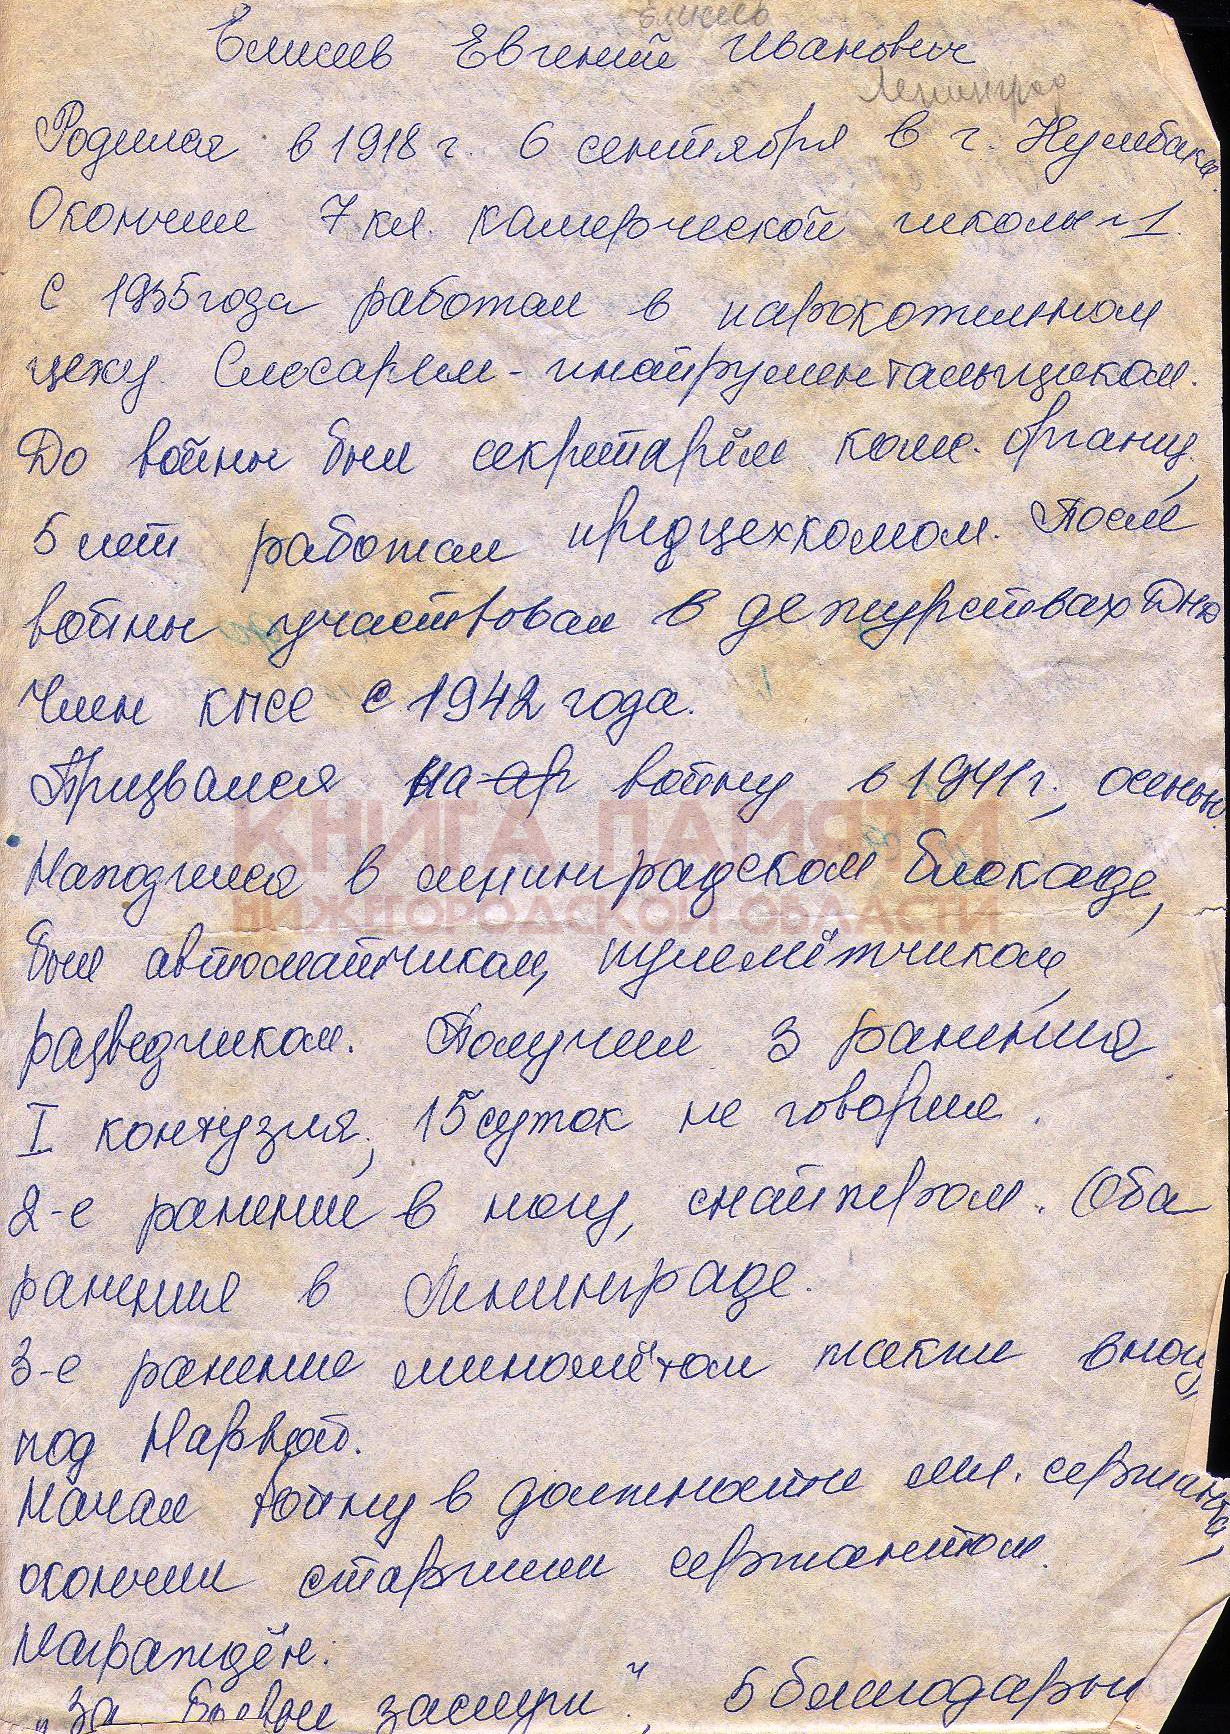 Елисеев
Елисеев Евгений Иванович
Ленинград
Родился в 1918 г. 6 сентября в г. Кулебаки.
Окончил 7 кл. камерческой школы №1.
С 1935 года работал в
цеху Слесарем-инструментальщиком.
До войны был секретарём ком. органиц.,
5 лет работал предцехкомом. После
войны участвовал в дежурствах ДНД
Член КПСС с 1942 года.
Призвался на ар войну в 1941 г., осенью.
КНИГА ПАМЯТИ
Находился в ленинградском блокаде,
НИЖНГОРОДСКОЙ ОБЛАСТИ
был автоматчиком, пулемётчиком,
разведчиком. Получил 3 ранения
I контузия, 15 суток не говорил.
2-е ранение в ногу, снайпером. Оба
ранения в Ленинграде.
3-е ранение миномётом также в ногу,
под Нарвой.
Начал войну в должности мл. сержанта,
окончил старшим сержантом.
Награждён:
"За боевые заслуги", 5 благодарн